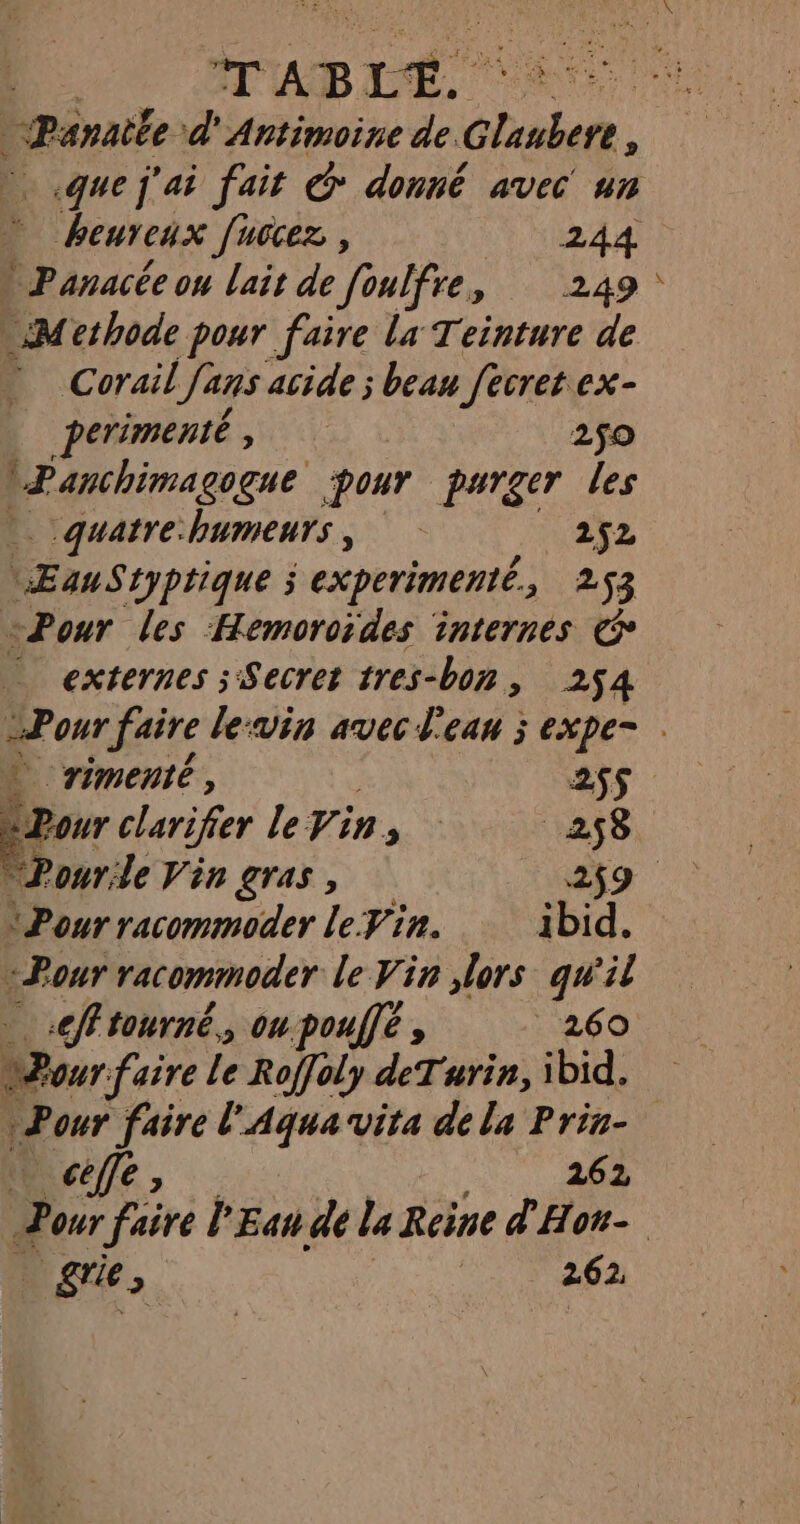 TABLE.
Panacée d'Antimoine de Glaubere,
que j'ai fait & donné avec un
heureux ſuccez, 244
Panacée ou lait de ſoulfre, 249
Methode pour faire la Teinture de
Corail ſans acide ; beau ſecret ex-
perimenté, 250
Panchimagogue pour purger les
quatre humeurs, 252
Eau Styptique ; experimenté, 253
Pour les Hemoroïdes internes &
externes ; Secret tres-bon, 254
Pour faire le vin avec l'eau ; expe-
rimenté, 255
Pour clarifier le Vin, 258
Pour le Vin gras, 259
Pour racommoder le Vin. ibid.
Pour racommoder le Vin lors qu'il
eſt tourné, ou pouſſé, 260
Pour faire le Roſſoly de Turin, ibid.
Pour faire l'Aqua vita de la Prin-
ceſſe, 262
Pour faire l'Eau de la Reine d'Hon-
grie, 262